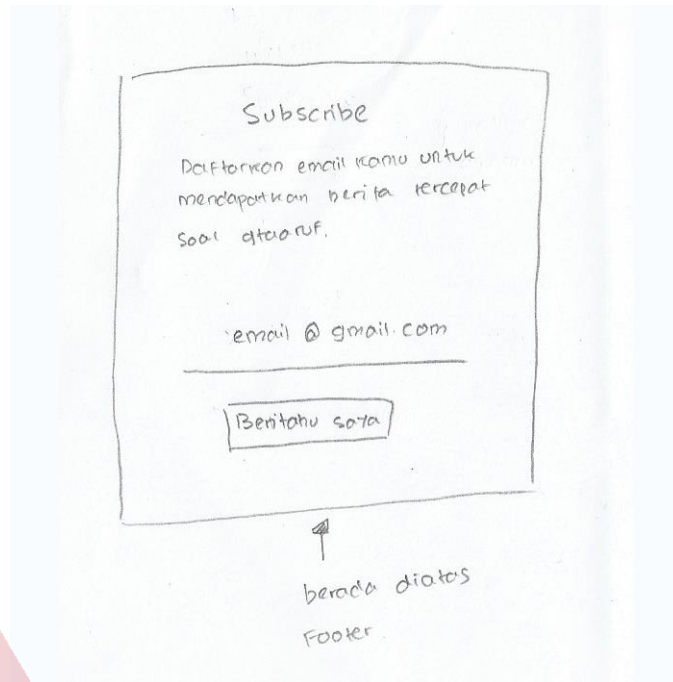 Subscribe
Daftarkan email kamu untuk
mendapatkan berita tercepat
soal qtaaruf.
email @ gmail.com
Beritahu saya
berada diatas
Footer